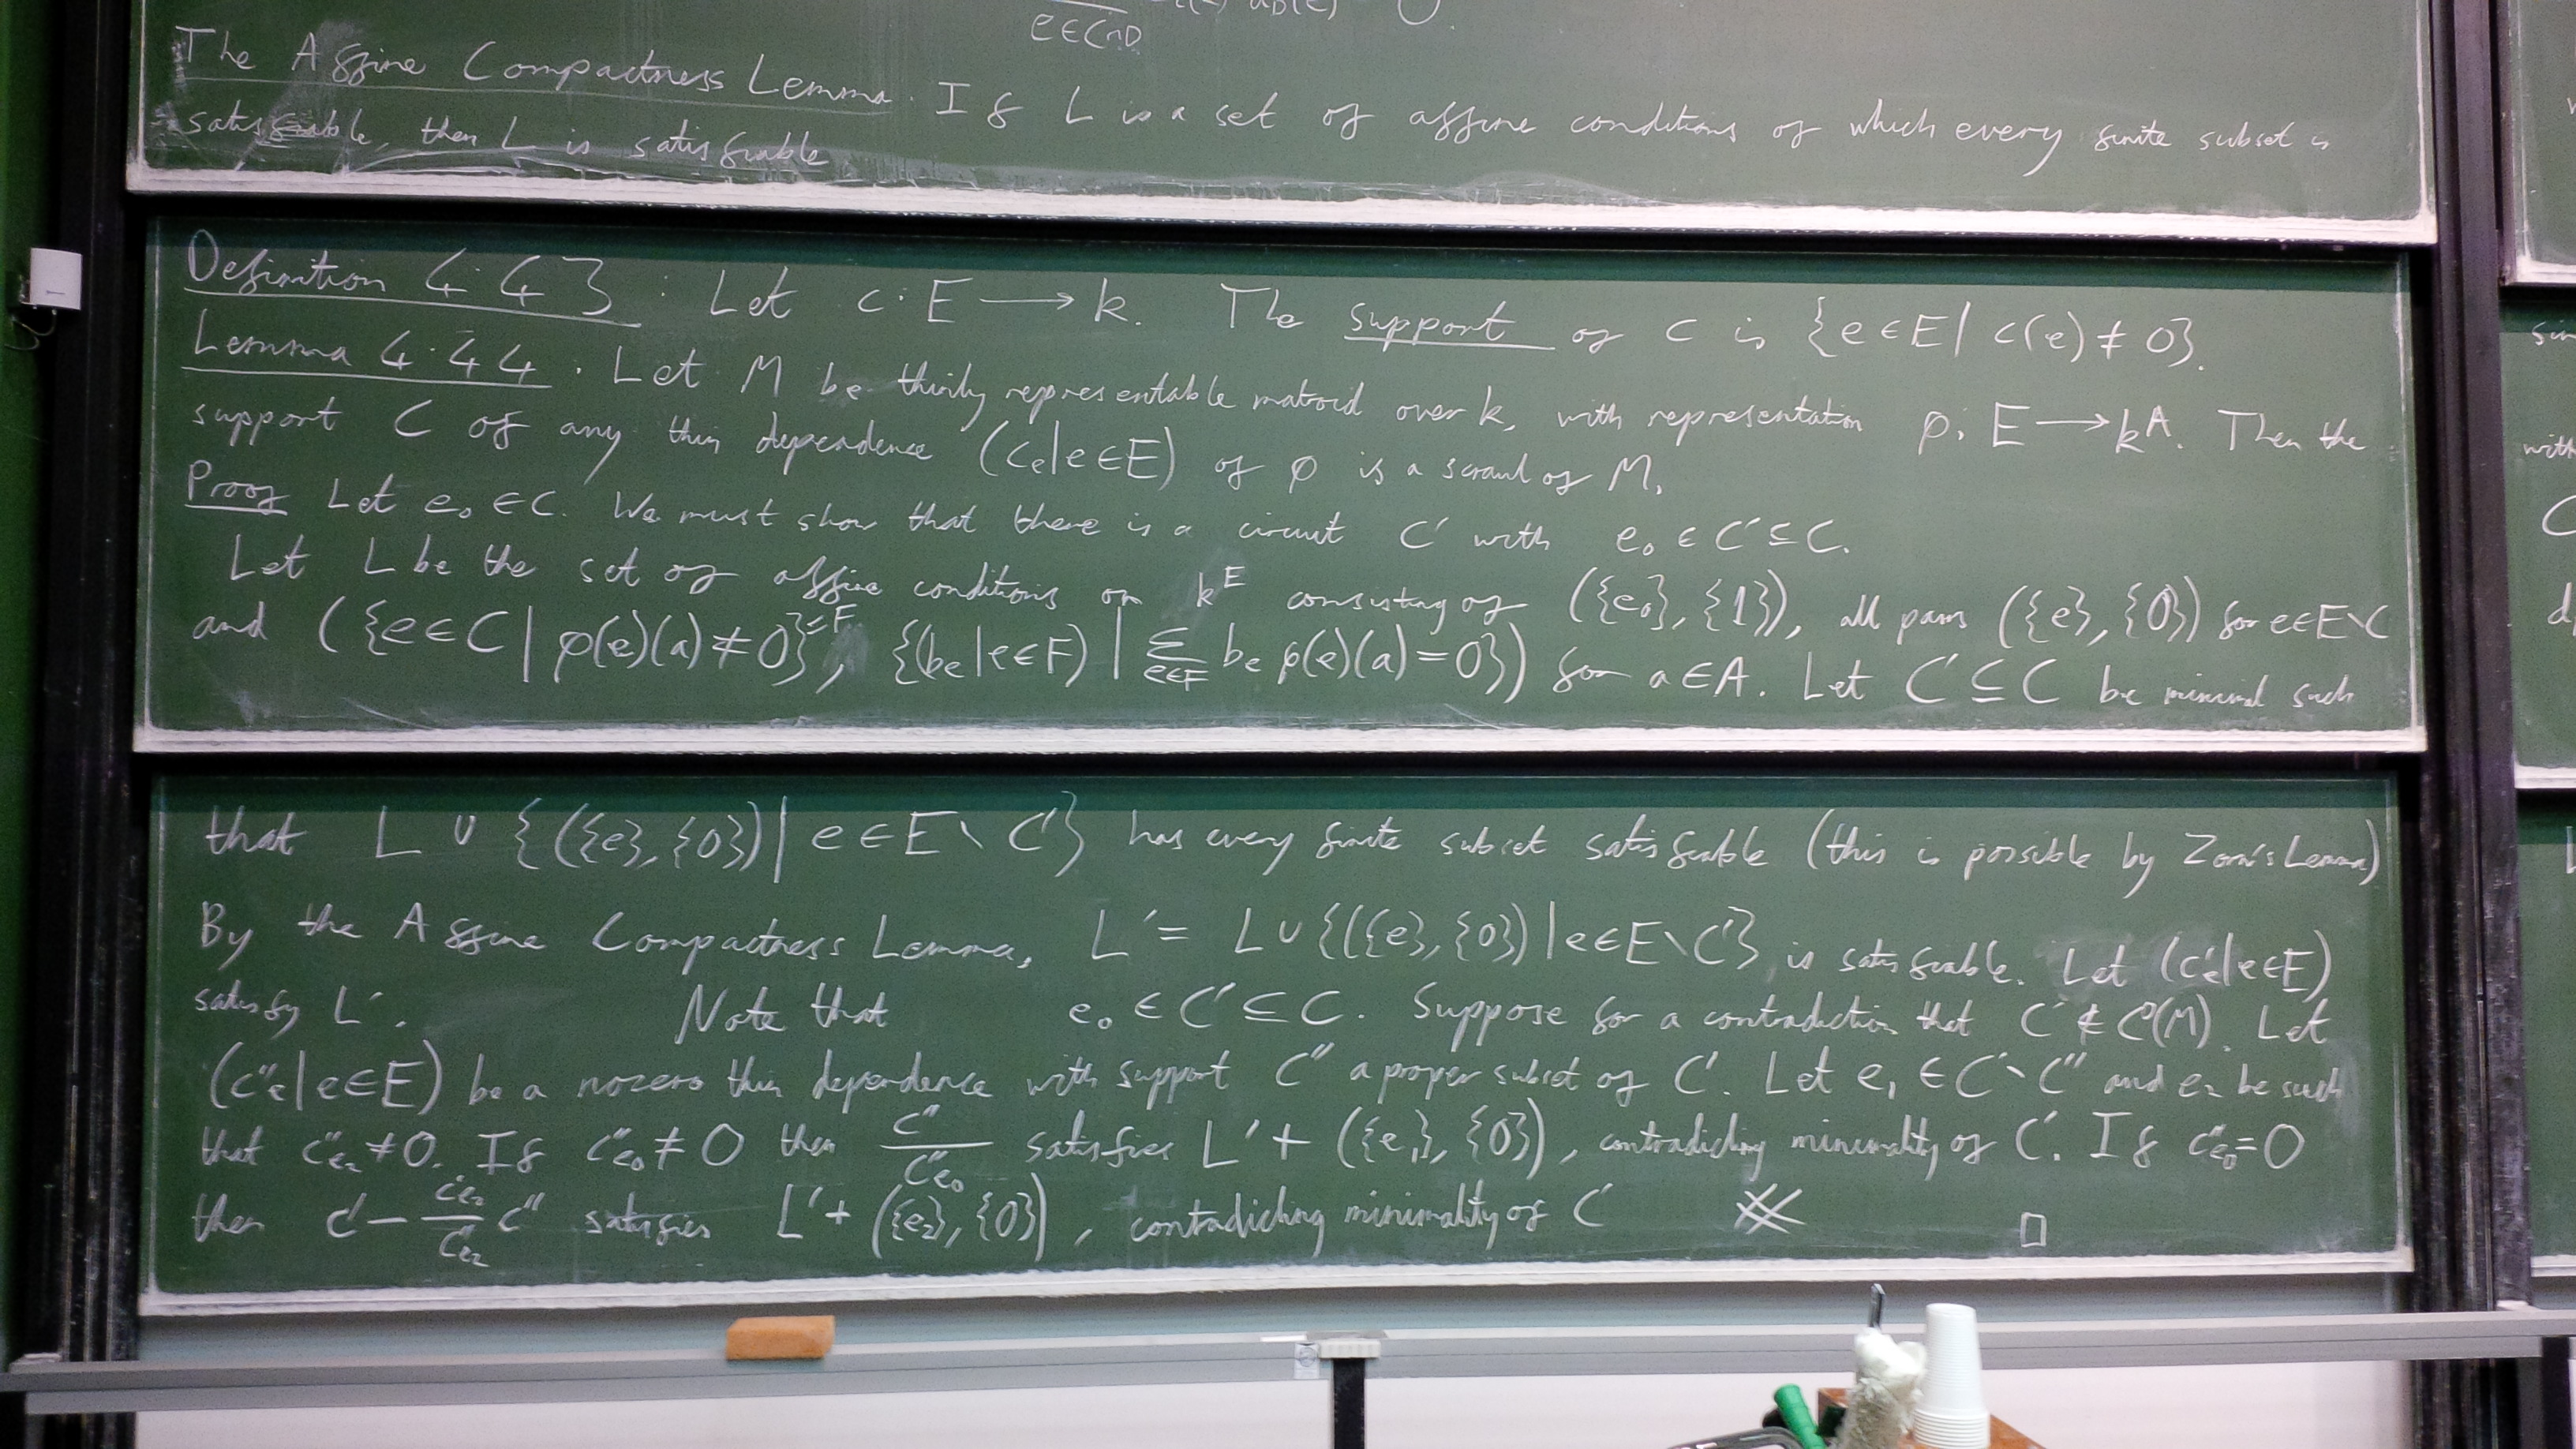 e∈C∩D
The Affine Compactness Lemma. If L is a set of affine conditions of which every finite subset is
satisfiable, then L is satisfiable
Definition 4.43: Let c: E → k. The support of c is {e∈E | c(e) ≠ 0}.
Lemma 4.44. Let M be thinly representable matroid over k, with representation φ: E → k^A. Then the
support C of any thin dependence (c_e|e∈E) of φ is a scrawl of M.
Proof Let e_0 ∈ C. We must show that there is a circuit C' with e_0 ∈ C' ⊆ C.
Let L be the set of affine conditions on k^E consisting of ({e_0}, {1}), all pairs ({e}, {0}) for e∈E\C
and ({e∈C | φ(e)(a) ≠ 0}=F, {(b_e|e∈F) | Σ_{e∈F} b_e φ(e)(a) = 0}) for a∈A. Let C' ⊆ C be minimal such
that L ∪ {({e}, {0}) | e∈E\C'} has every finite subset satisfiable (this is possible by Zorn's Lemma)
By the Affine Compactness Lemma, L' = L∪{({e}, {0}) | e∈E\C'} is satisfiable. Let (c'_e|e∈E)
satisfy L'. Note that e_0 ∈ C' ⊆ C. Suppose for a contradiction that C' ∉ C(M). Let
(c''_e|e∈E) be a nozero thin dependence with support C'' a proper subset of C'. Let e_1 ∈ C'\C'' and e_2 be such
that c''_{e_2} ≠ 0. If c''_{e_0} ≠ 0 then c''/c''_{e_0} satisfies L' + ({e_1}, {0}), contradicting minimality of C'. If c''_{e_0} = 0
then c' − c'_{e_2}/c''_{e_2} c'' satisfies L' + ({e_2}, {0}), contradicting minimality of C' ※ □